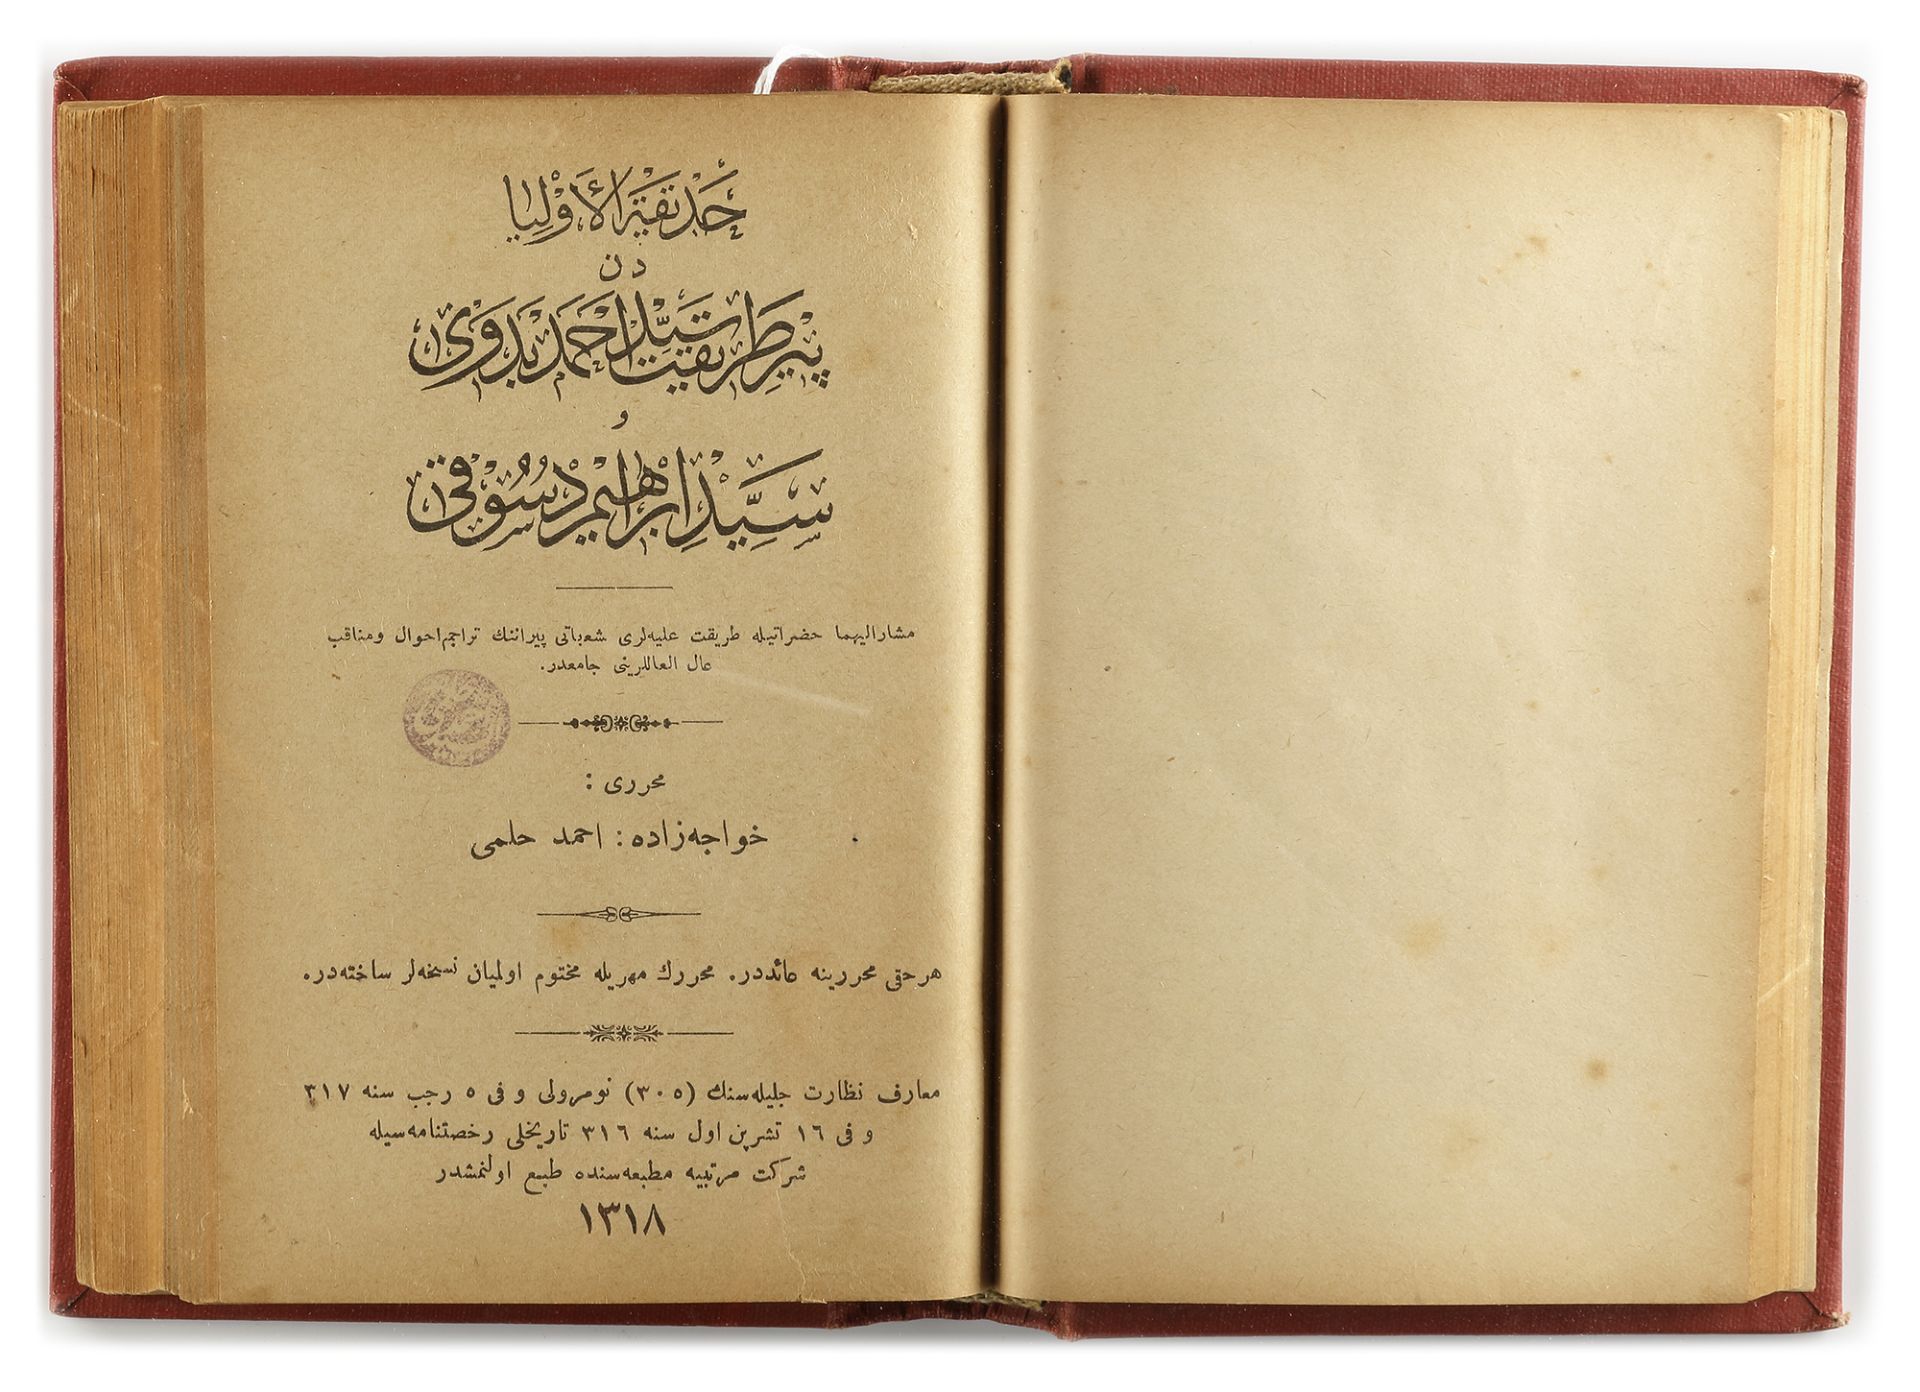 حَدِيقَةُ الْأَوْلِيَا
دن
پیرِ طریقت سَیِّد اَحمَد بَدَوِی
و
سَیِّدِ ابراهیم دسُوقی
مشارالیهما حضراتیله طریقت علیه‌لری شعباتی پیراننك تراجم احوال ومناقب
عال العاللرینی جامعدر.
محرری :
خواجه‌زاده : احمد حلمی
هر حقی محررینه عائددر. محررك مهریله مختوم اولمیان نسخه‌لر ساخته‌در.
معارف نظارت جلیله‌سنك (٣٠٥) نومرولی و فی ٥ رجب سنه ٣١٧
و فی ١٦ تشرین اول سنه ٣١٦ تاریخلی رخصتنامه‌سیله
شرکت مرتبیه مطبعه‌سنده طبع اولنمشدر
١٣١٨